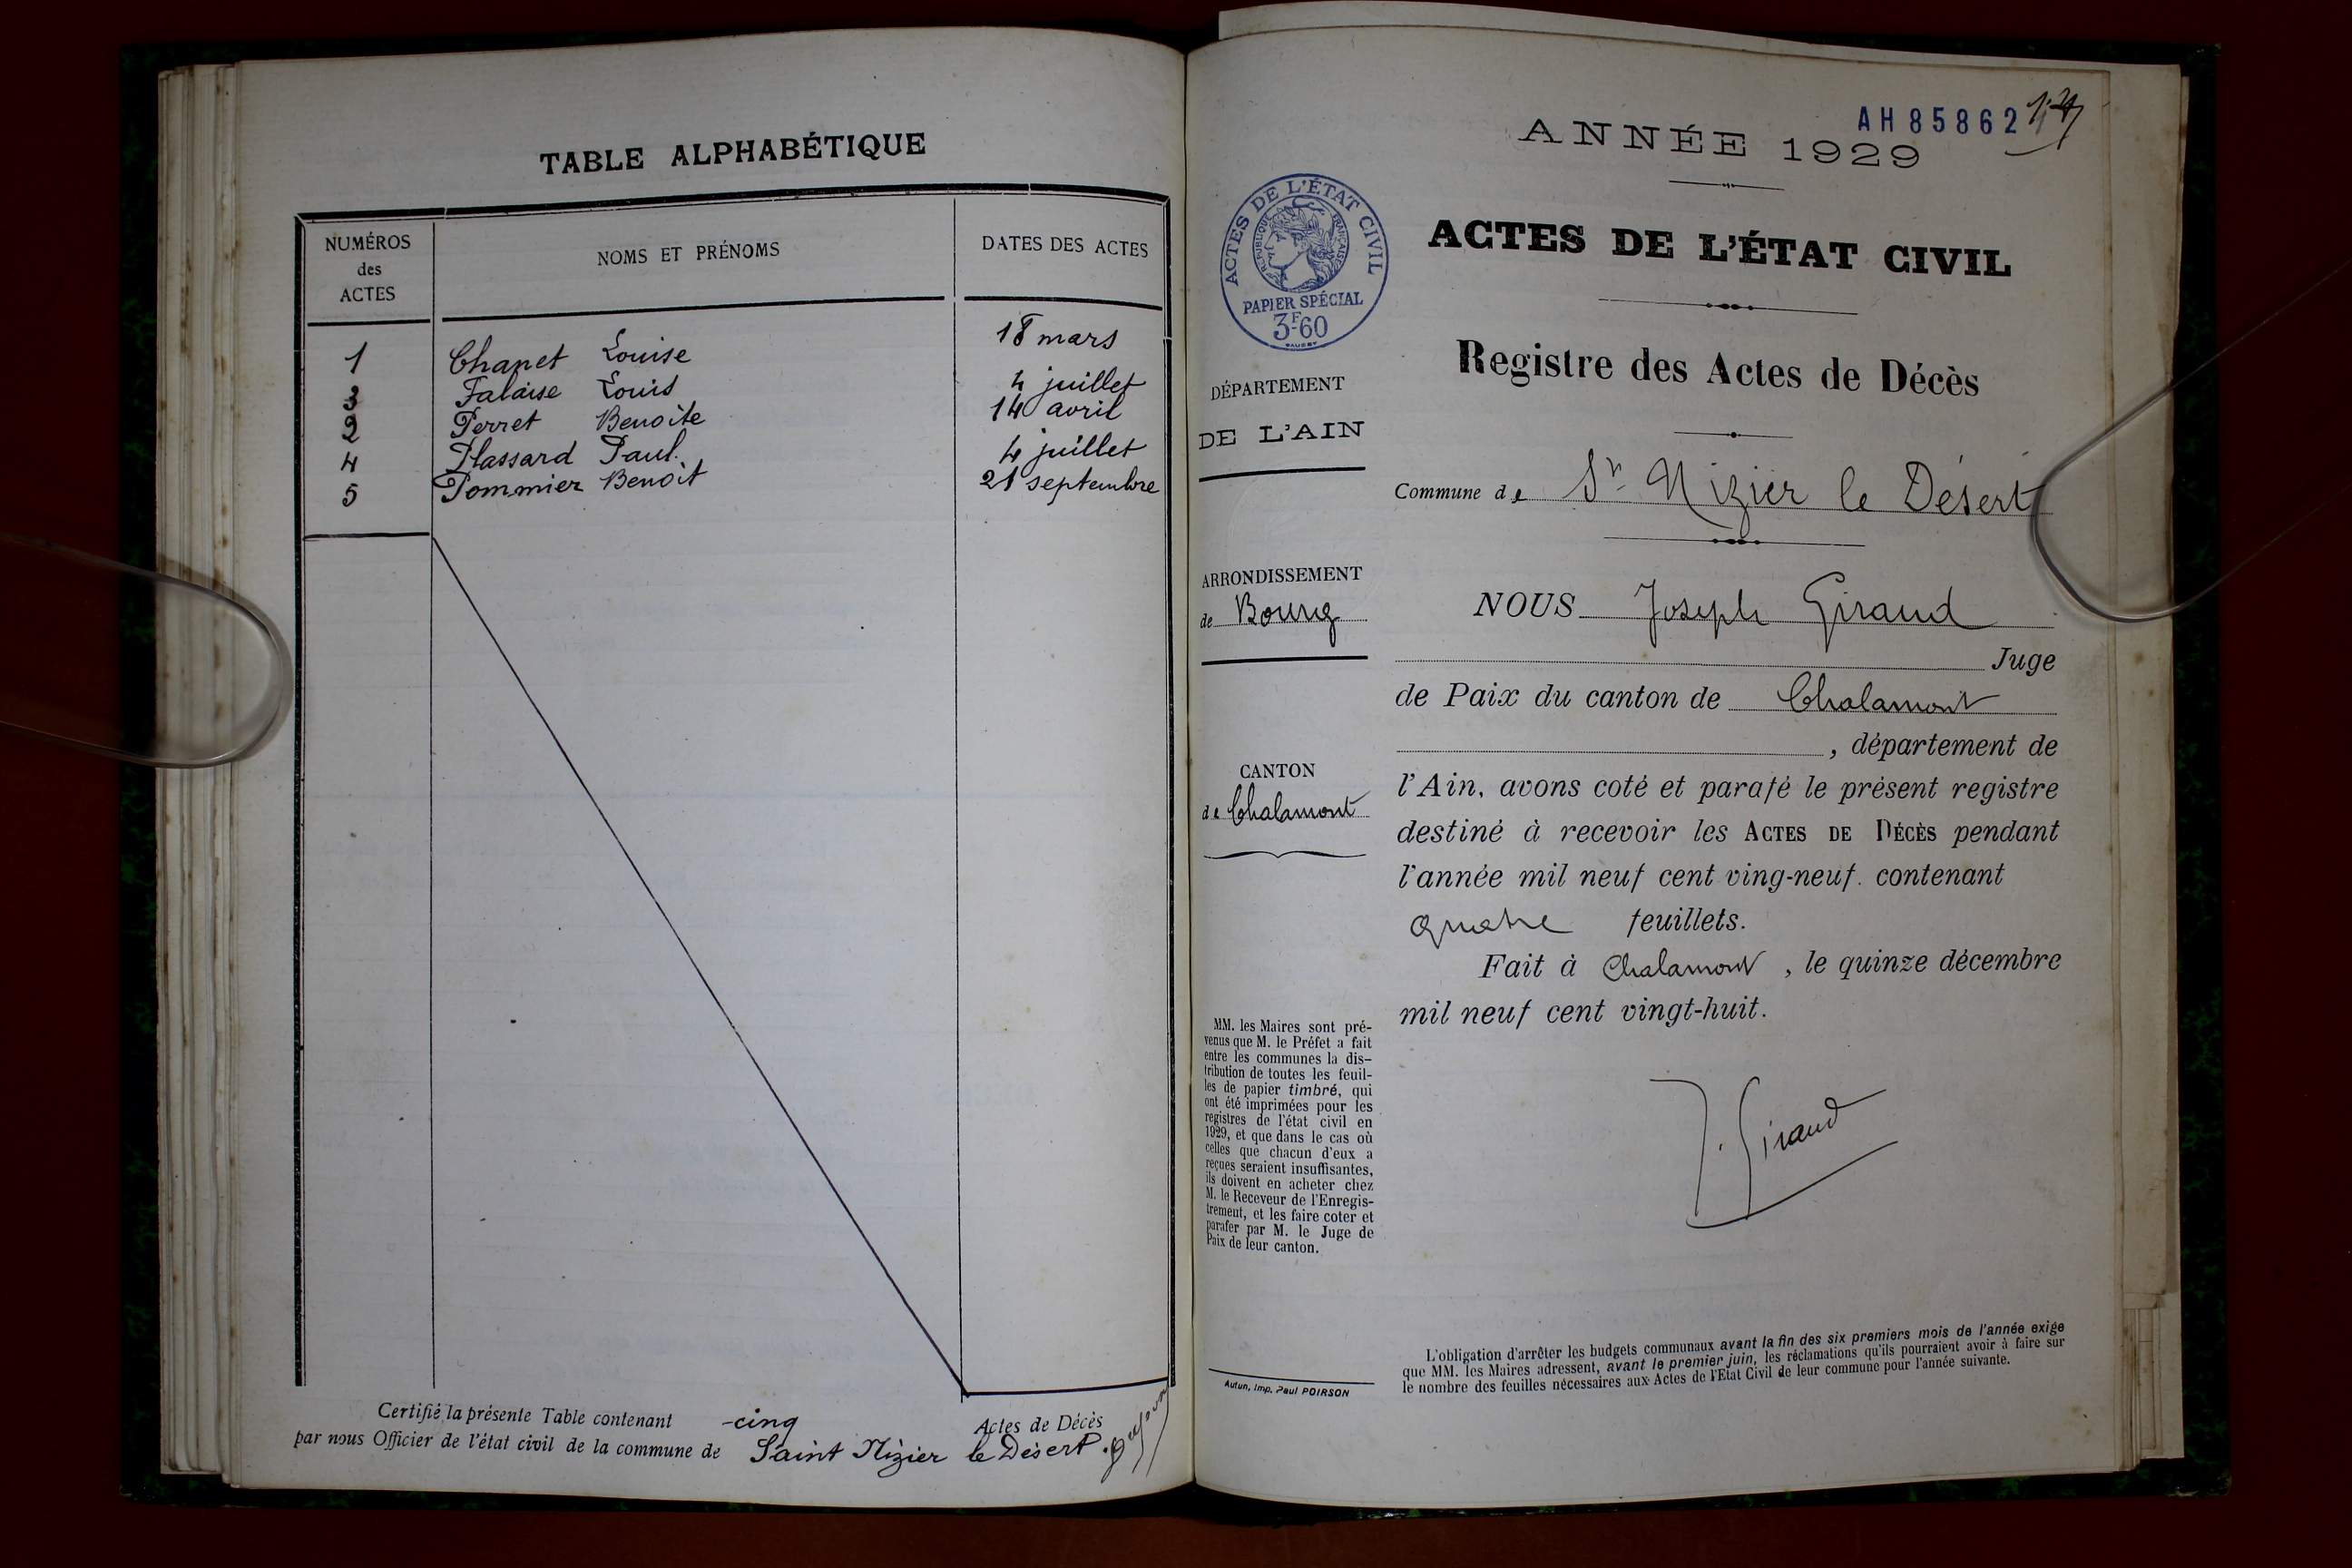 TABLE ALPHABÉTIQUE
NUMÉROS des ACTES
NOMS ET PRÉNOMS
DATES DES ACTES
1 Chanet Louise 18 mars
3 Falaise Louis 4 juillet
2 Perret Benoite 14 avril
4 Plassard Paul. 4 juillet
5 Pommier Benoit 21 septembre
Certifié la présente Table contenant -cinq Actes de Décès
par nous Officier de l'état civil de la commune de Saint Nizier le Désert.
AH 85862
ANNÉE 1929
ACTES DE L'ÉTAT CIVIL
RÉPUBLIQUE FRANÇAISE
PAPIER SPÉCIAL
3F-60
ACTES DE L'ÉTAT CIVIL
Registre des Actes de Décès
DÉPARTEMENT
DE L'AIN
Commune de St Nizier le Désert
ARRONDISSEMENT
de Bourg
CANTON
de Chalamont
NOUS Joseph Giraud
Juge
de Paix du canton de Chalamont
, département de
l'Ain, avons coté et parafé le présent registre
destiné à recevoir les ACTES DE DÉCÈS pendant
l'année mil neuf cent ving-neuf. contenant
quatre feuillets.
Fait à Chalamont, le quinze décembre
mil neuf cent vingt-huit.
J. Giraud
MM. les Maires sont pré-
venus que M. le Préfet a fait
entre les communes la dis-
tribution de toutes les feuil-
les de papier timbré, qui
ont été imprimées pour les
registres de l'état civil en
1929, et que dans le cas où
celles que chacun d'eux a
reçues seraient insuffisantes,
ils doivent en acheter chez
M. le Receveur de l'Enregis-
trement, et les faire coter et
parafer par M. le Juge de
Paix de leur canton.
Autun, Imp. Paul POIRSON
L'obligation d'arrêter les budgets communaux avant la fin des six premiers mois de l'année exige
que MM. les Maires adressent, avant le premier juin, les réclamations qu'ils pourraient avoir à faire sur
le nombre des feuilles nécessaires aux Actes de l'Etat Civil de leur commune pour l'année suivante.